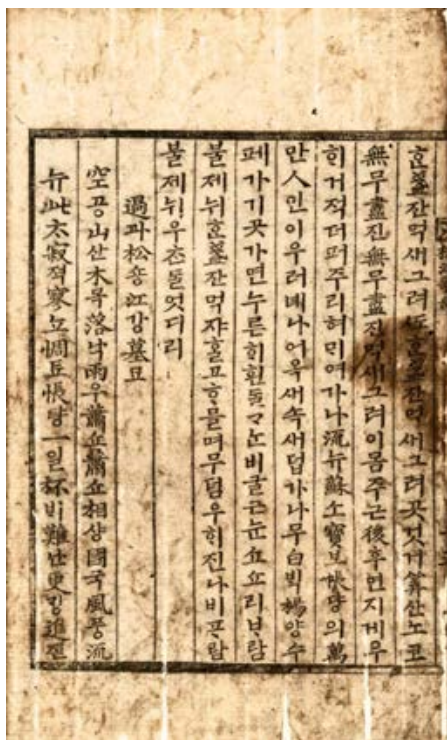 ᄒᆞᆫ盞잔먹새그려ᄯᅩᄒᆞᆫ盞잔먹새그려곳것거算산노코
無무盡진無무盡진먹새그려이몸주근後후면지게우
ᄒᆡ거적더퍼주리혀ᄆᆡ여가나流뉴蘇소寶보帳댱의萬
만人인이우러녜나어욱새속새덥가나무白ᄇᆡᆨ楊양수
페가기곳가면누른ᄒᆡ흰ᄃᆞᆯᄀᆞᄂᆞᆫ비굴근눈쇼쇼리ᄇᆞ람
불제뉘ᄒᆞᆫ盞잔먹쟈ᄒᆞᆯ고ᄒᆞ믈며무덤우ᄒᆡ진나비ᄑᆞ람
불제뉘우ᄎᆞᆫᄃᆞᆯ엇디리
過과松숑江강墓묘
空공山산木목落낙雨우蕭쇼蕭쇼相샹國국風풍流
뉴此太寂젹寥뇨惆듀悵댱一일杯ᄇᆡ難난更ᄀᆡᆼ進진